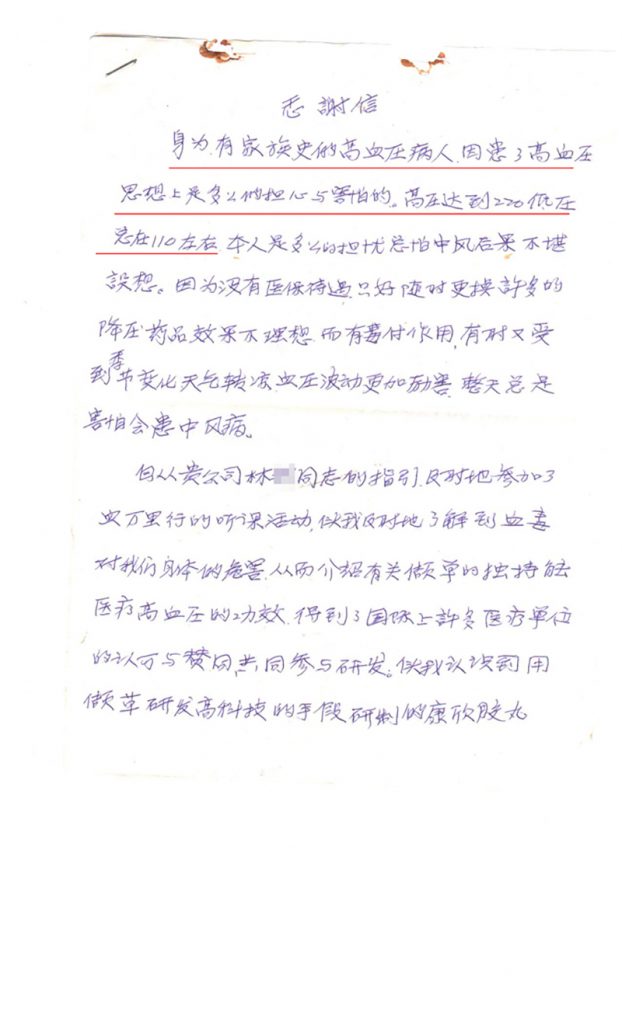 感謝信
身为有家族史的高血压病人,因患了高血压
思想上是多么的担心与害怕的。高压达到220低压
总在110左右,本人是多么的担忧总怕中风后果不堪
設想。因为没有医保待遇只好随时更换許多的
降压药品效果不理想,而有着付作用,有时又受
到季节变化天气转凉,血压波动更加励害,整天总是
害怕会患中风病。
自从贵公司林 同志的指引,及时地参加了
血万里行的听课活动,使我及时地了解到血毒
对我们身体的危害,从而介绍有关懒草的独特能
医疗高血压的功效,得到了国际上許多医疗单位
的认可与赞同,共同参与研发,使我认识到用
懒草研发高科技的手段研制的康欣胶丸